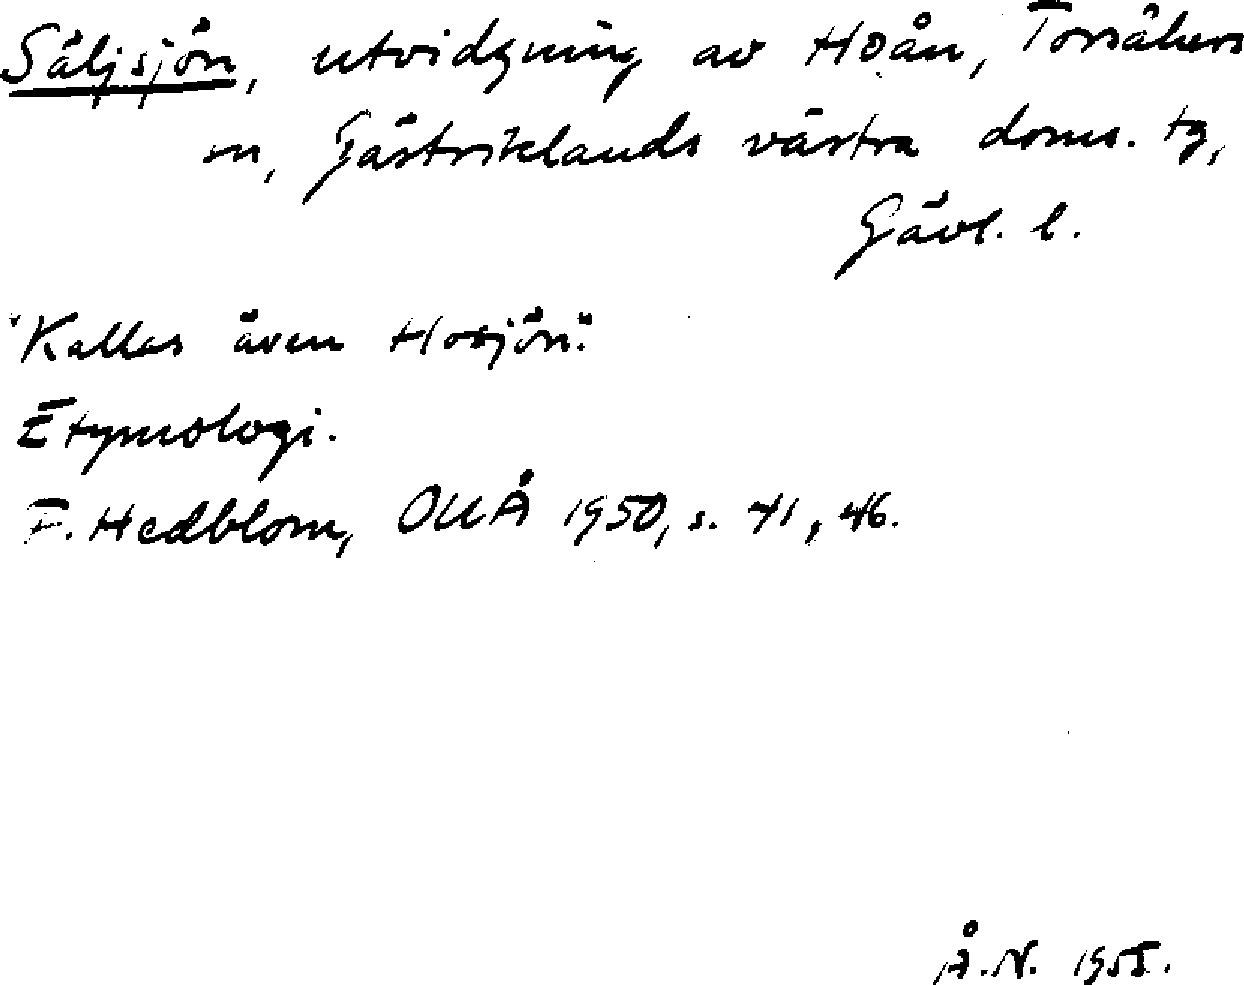 Säljsjön, utvidgning av Hoån, Torsåkers
sn, Gästriklands västra doms. tg,
Gävl. l.
"Kallas även Hosjön."
Etymologi.
F. Hedblom, OUÅ 1950, s. 41, 46.
Å.N. 1955.